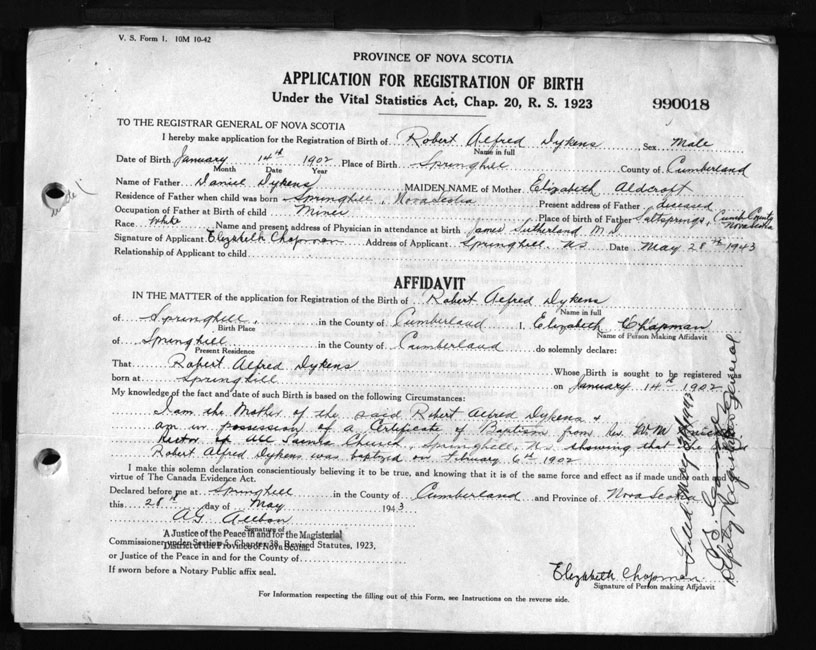 V. S. Form 1. 10M 10-42
PROVINCE OF NOVA SCOTIA
APPLICATION FOR REGISTRATION OF BIRTH
Under the Vital Statistics Act, Chap. 20, R. S. 1923
990018
TO THE REGISTRAR GENERAL OF NOVA SCOTIA
I hereby make application for the Registration of Birth of Robert Alfred Dykens Sex Male
Name in full
Date of Birth January 14th 1902 Place of Birth Springhill County of Cumberland
Month Date Year
Name of Father Daniel Dykens MAIDEN NAME of Mother Elizabeth Aldcroft
Residence of Father when child was born Springhill, Nova Scotia Present address of Father desesed
Occupation of Father at Birth of child Miner Place of birth of Father Saltsprings, Cumb County Nova Scotia
Race White Name and present address of Physician in attendance at birth James Sutherland M.D.
Signature of Applicant Elizabeth Chapman Address of Applicant Springhill, NS Date May 28th 1943
Relationship of Applicant to child
AFFIDAVIT
IN THE MATTER of the application for Registration of the Birth of Robert Alfred Dykens
Name in full
of Springhill, in the County of Cumberland I, Elizabeth Chapman
Birth Place Name of Person Making Affidavit
of Springhill in the County of Cumberland do solemnly declare:
Present Residence
That Robert Alfred Dykens Whose Birth is sought to be registered was
born at Springhill on January 14th 1902
My knowledge of the fact and date of such Birth is based on the following Circumstances:
I am the Mother of the said Robert Alfred Dykens &
am in possession of a Certificate of Baptism from Rev. W. M.
Rector of All Saints Church, Springhill, NS showing that
Robert Alfred Dykens was baptized on February 6th 1902
I make this solemn declaration conscientiously believing it to be true, and knowing that it is of the same force and effect as if made under oath and
virtue of The Canada Evidence Act.
Declared before me at Springhill in the County of Cumberland and Province of Nova Scotia
this 28th day of May 1943
A.G. Allbon
Signature of
A Justice of the Peace in and for the Magisterial
District of the Province of Nova Scotia.
Commissioner under Section 5, Chapter 38, Revised Statutes, 1923,
or Justice of the Peace in and for the County of
If sworn before a Notary Public affix seal.
Elizabeth Chapman
Signature of Person making Affidavit
For Information respecting the filling out of this Form, see Instructions on the reverse side.
Filed May 1943
Deputy Registrar General